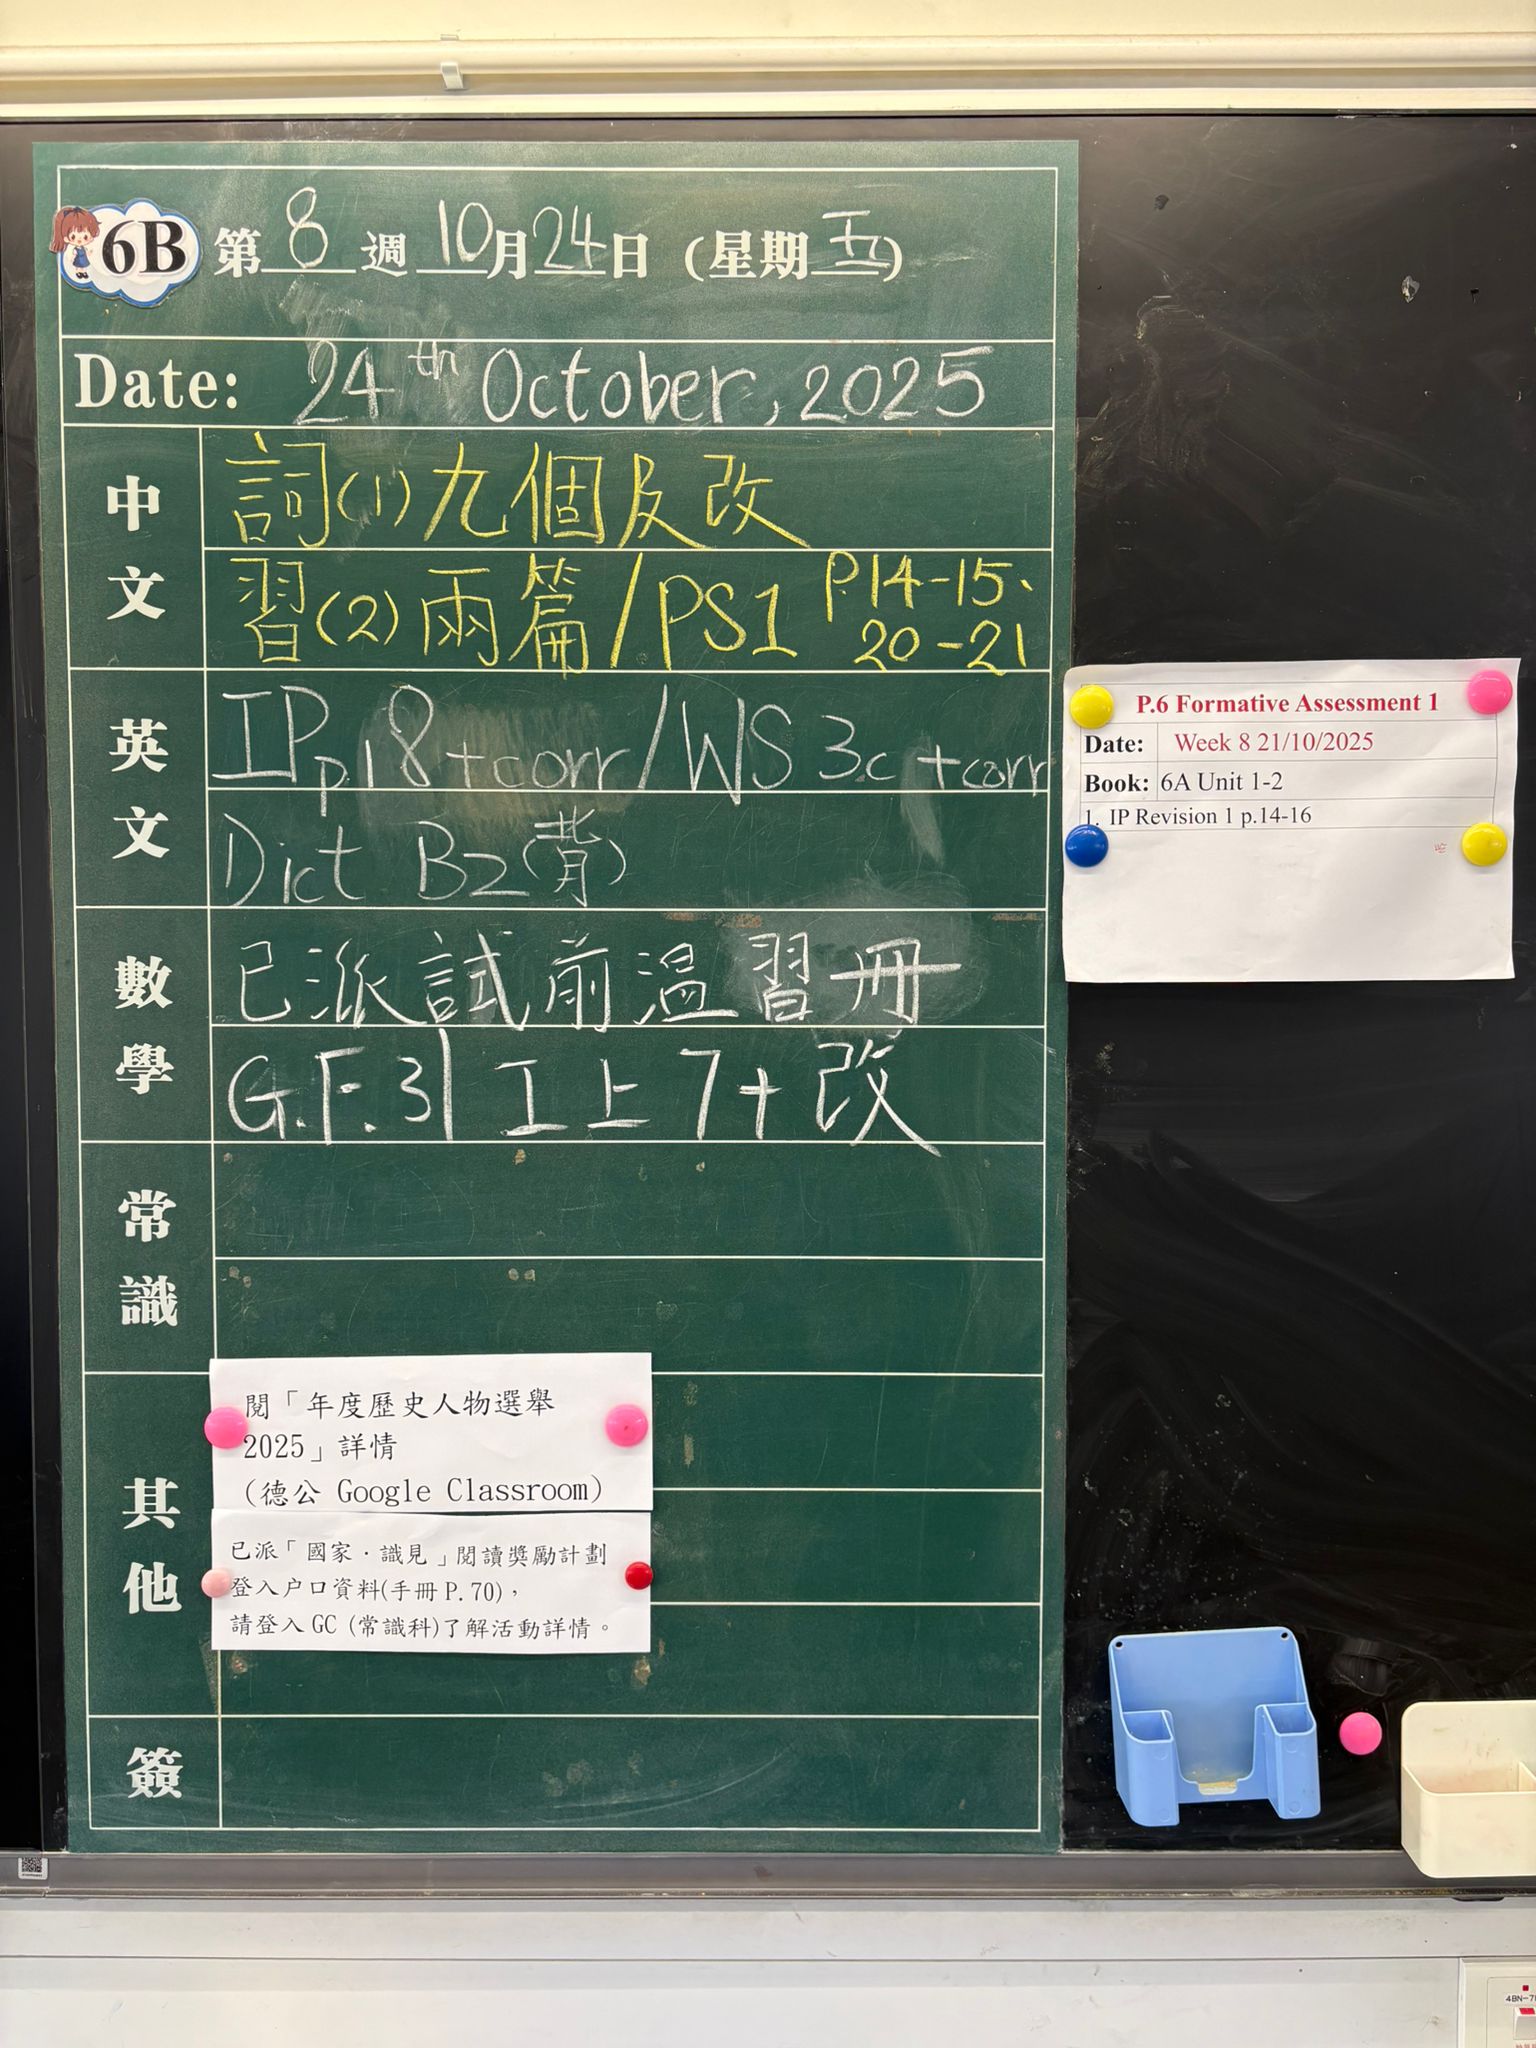 6B 第 8 週 10 月 24 日 (星期五)
Date: 24th October, 2025
中文
詞(1)九個及改
習(2)兩篇/PS1 P.14-15、
20-21
英文
IP p.18+corr/WS 3c+corr
Dict B2(背)
數學
已派試前溫習冊
G.F.31 工上7+改
常識
其他
閱「年度歷史人物選舉
2025」詳情
(德公 Google Classroom)
已派「國家·識見」閱讀獎勵計劃
登入户口資料(手冊 P.70)，
請登入 GC (常識科)了解活動詳情。
簽
P.6 Formative Assessment 1
Date: Week 8 21/10/2025
Book: 6A Unit 1-2
1. IP Revision 1 p.14-16